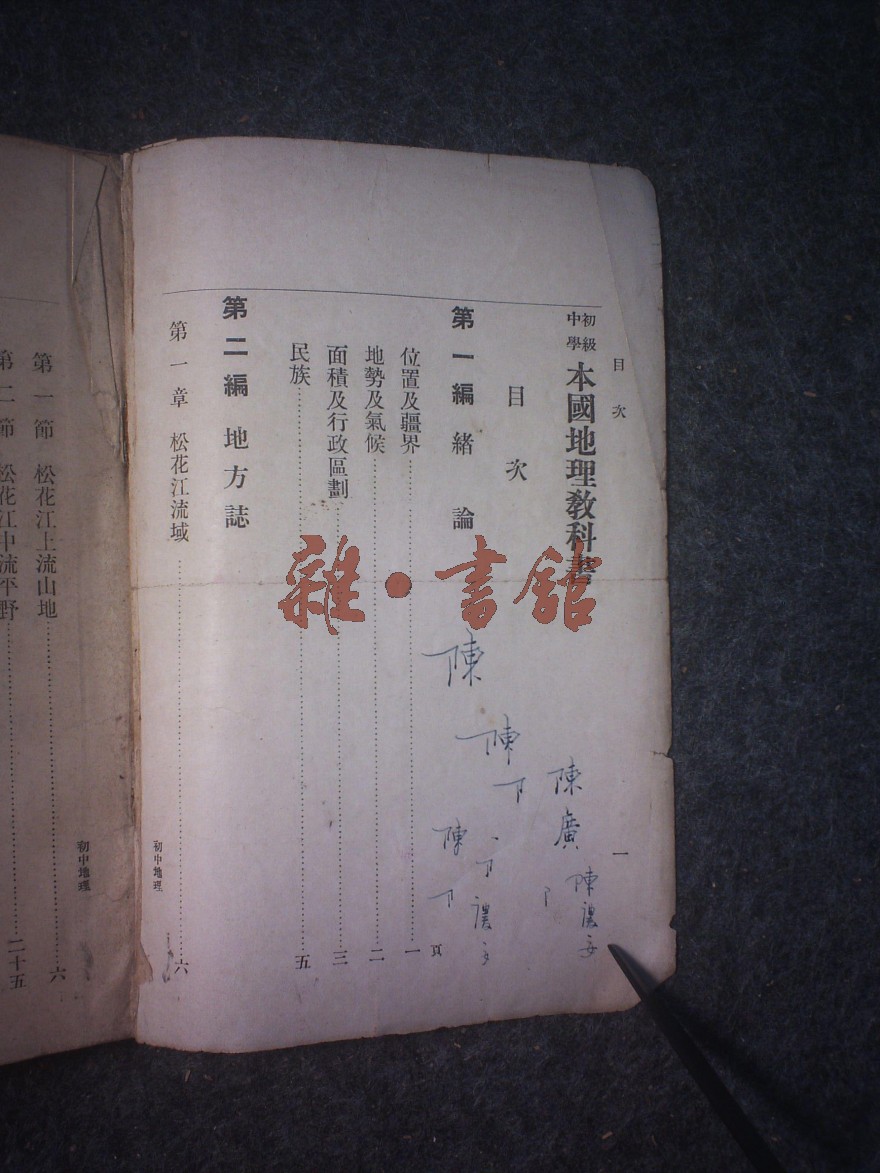 目次
一
初級中學 本國地理教科書
目次
頁
第一編 緒論
位置及疆界……一
地勢及氣候……二
面積及行政區劃……三
民族……五
第二編 地方誌
第一章 松花江流域……六
初中地理
初中地理
第一節 松花江上流山地……六
第二節 松花江中流平野……二十五
雜·書館
陳
陳
陳
陳廣
陳禮
禮